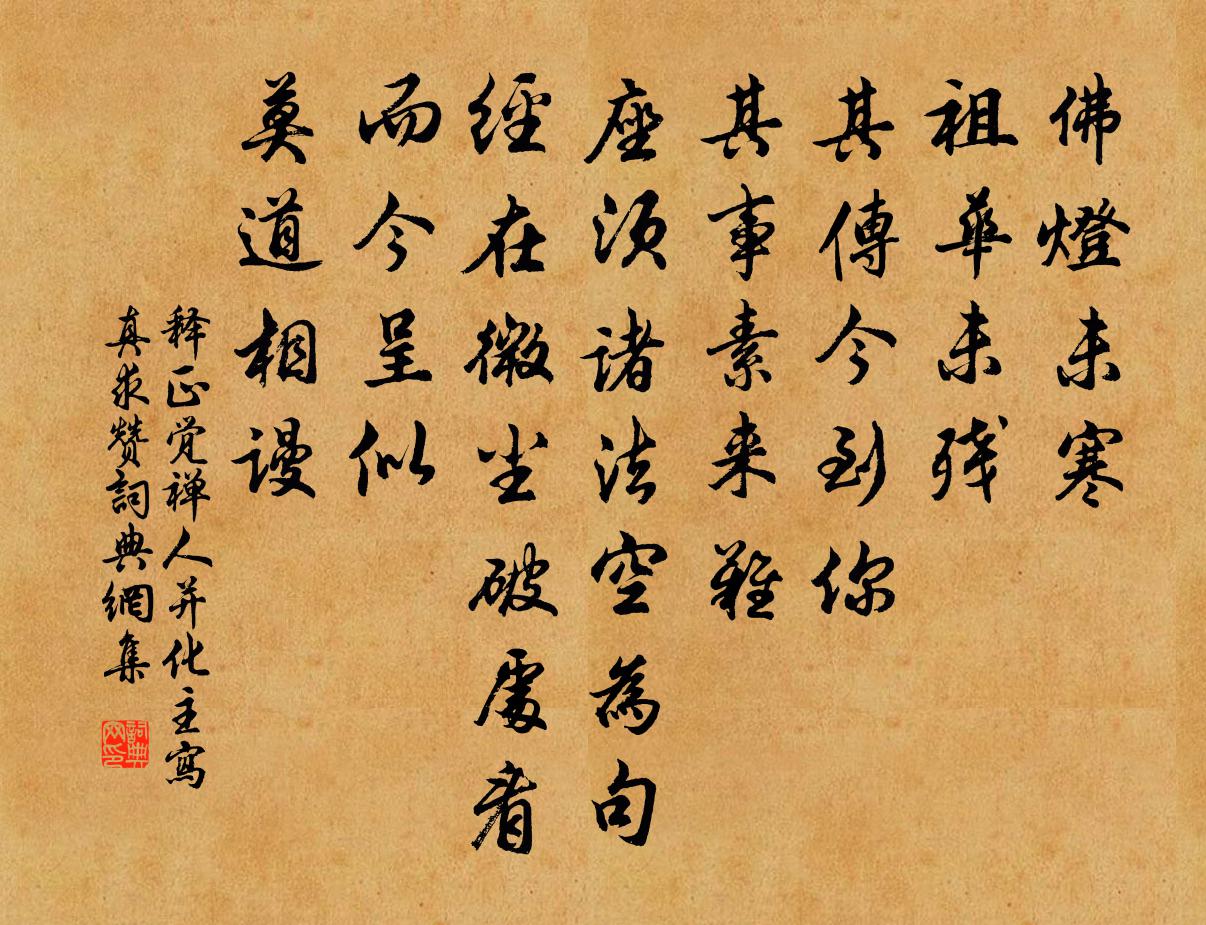 佛燈未寒
祖華未残
其傳今到你
其事素来難
座須諸法空為句
經在微尘破處看
而今呈似
莫道相謾
释正觉禅人并化主寫
真求赞詞典網集
詞典
网印